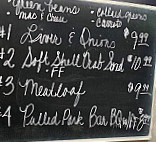 green beans • collard greens
mac & cheese carrots
#1 Liver & Onions $9.99
#2 Soft Shell Crab Sand $10.99
FF
#3 Meatloaf $9.99
#4 Pulled Pork Bar BQ w/FF